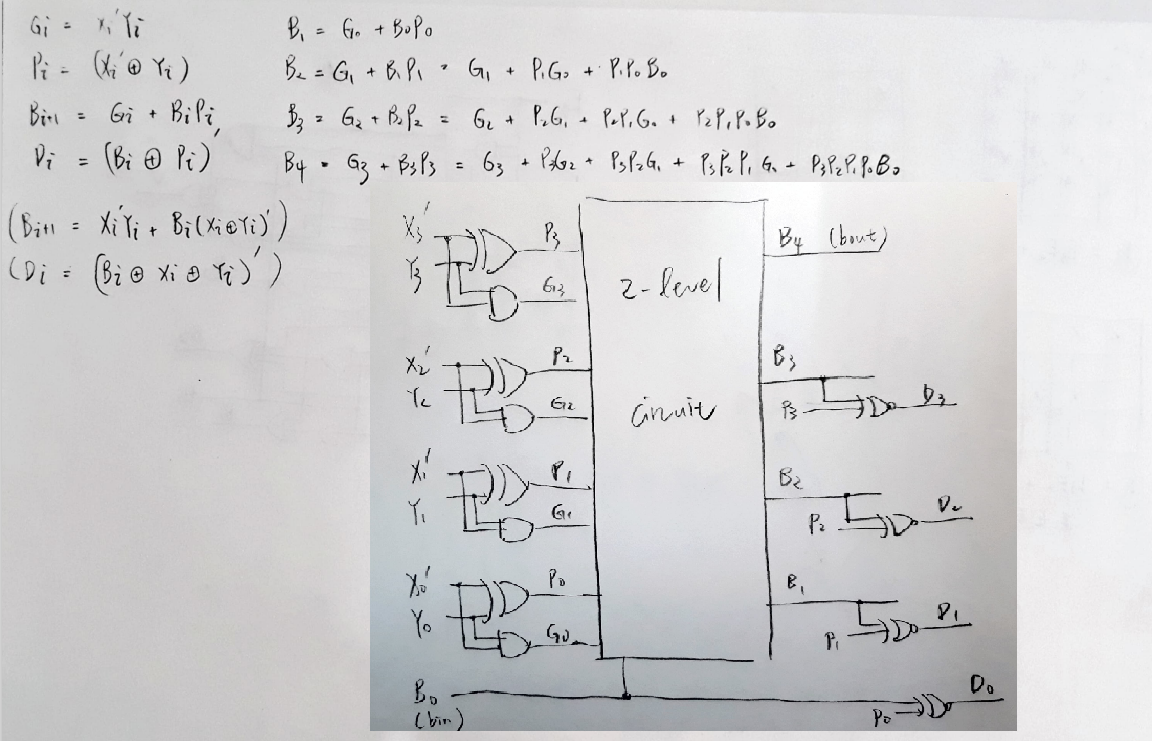 Gi = xi'Yi
Pi = (Xi'⊕Yi)
Bi+1 = Gi + BiPi,
Di = (Bi ⊕ Pi)'
(Bi+1 = Xi'Yi + Bi(Xi⊕Yi)')
(Di = (Bi ⊕ Xi ⊕ Yi)')
B1 = G0 + B0P0
B2 = G1 + B1P1 = G1 + P1G0 + P1P0B0
B3 = G2 + B2P2 = G2 + P2G1 + P2P1G0 + P2P1P0B0
B4 = G3 + B3P3 = G3 + P3G2 + P3P2G1 + P3P2P1G0 + P3P2P1P0B0
X3' P3
Y3 G3
X2' P2
Y2 G2
X1' P1
Y1 G1
X0' P0
Y0 G0
B0
(bin)
2-level
circuit
B4 (bout)
B3
P3 D3
B2
P2 D2
B1
P1 D1
P0 D0